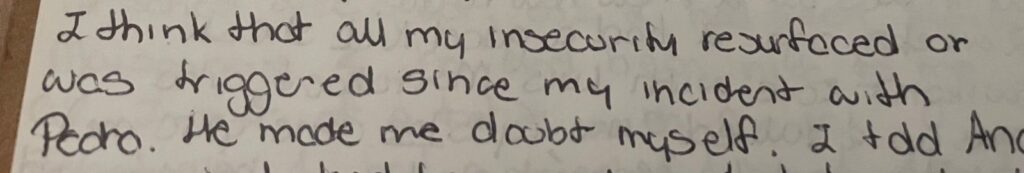 I think that all my insecurity resurfaced or
was triggered since my incident with
Pedro. He made me doubt myself. I told